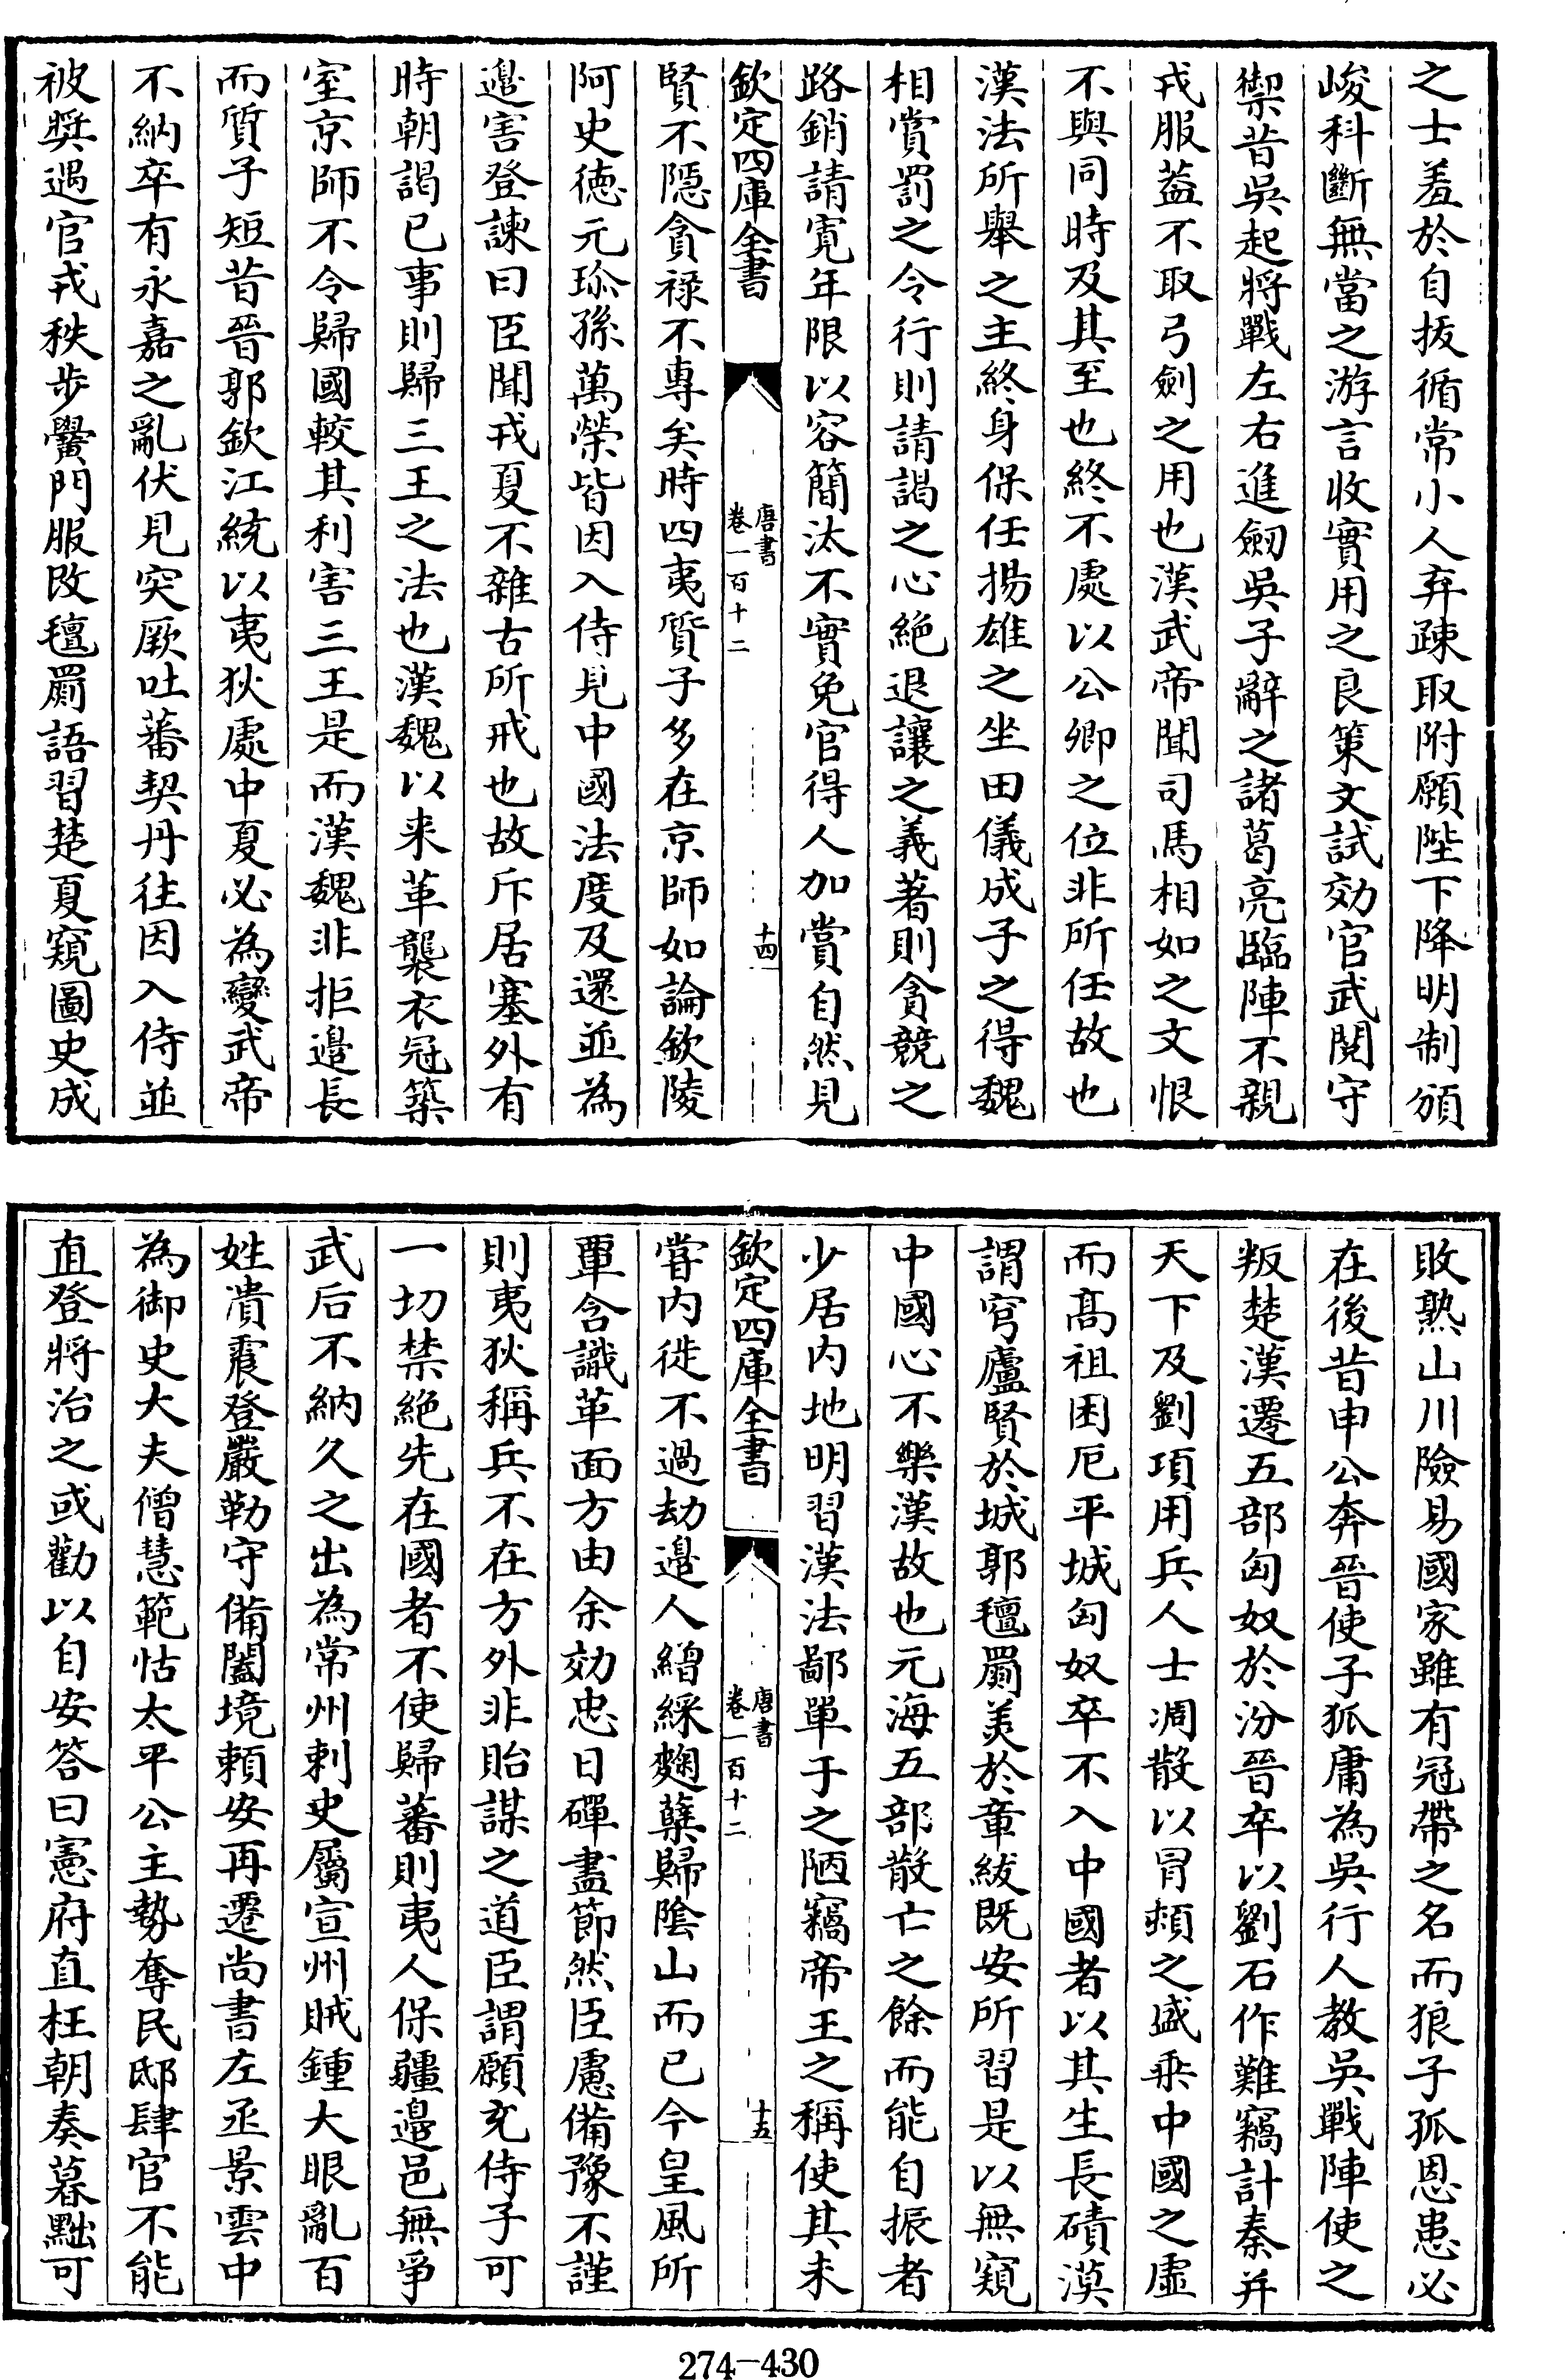 之士羞於自拔循常小人弃疎取附願陛下降明制頒
峻科斷無當之游言收實用之良策文試効官武閲守
禦昔吳起將戰左右進劒吳子辭之諸葛亮臨陣不親
戎服葢不取弓劍之用也漢武帝聞司馬相如之文恨
不與同時及其至也終不處以公卿之位非所任故也
漢法所舉之主終身保任揚雄之坐田儀成子之得魏
相賞罰之令行則請謁之心絶退讓之義著則貪競之
路銷請寛年限以容簡汰不實免官得人加賞自然見
欽定四庫全書
唐書
卷一百十二
十四
賢不隠貪禄不專矣時四夷質子多在京師如論欽陵
阿史徳元珎孫萬榮皆因入侍見中國法度及還並為
邉害登諫曰臣聞戎夏不雜古所戒也故斥居塞外有
時朝謁已事則歸三王之法也漢魏以来革襲衣冠築
室京師不令歸國較其利害三王是而漢魏非拒邉長
而質子短昔晉郭欽江統以夷狄處中夏必為變武帝
不納卒有永嘉之亂伏見突厥吐蕃契丹往因入侍並
被奬遇官戎秩步黌門服改氊罽語習楚夏窺圖史成
敗熟山川險易國家雖有冠帶之名而狼子孤恩患必
在後昔申公奔晉使子狐庸為吳行人教吳戰陣使之
叛楚漢遷五部匈奴於汾晉卒以劉石作難竊計秦并
天下及劉項用兵人士凋散以冒頓之盛乘中國之虚
而髙祖困厄平城匈奴卒不入中國者以其生長磧漠
謂穹廬賢於城郭氊罽美於章紱既安所習是以無窺
中國心不樂漢故也元海五部散亡之餘而能自振者
少居内地明習漢法鄙單于之陋竊帝王之稱使其未
欽定四庫全書
唐書
卷一百十二
十五
甞内徙不過劫邉人繒綵麴糵歸隂山而已今皇風所
覃含識革面方由余効忠日磾盡節然臣慮備豫不謹
則夷狄稱兵不在方外非貽謀之道臣謂願充侍子可
一切禁絶先在國者不使歸蕃則夷人保疆邉邑無爭
武后不納久之出為常州刺史屬宣州賊鍾大眼亂百
姓潰震登嚴勒守備闔境頼安再遷尚書左丞景雲中
為御史大夫僧慧範怙太平公主勢奪民邸肆官不能
直登將治之或勸以自安答曰憲府直枉朝奏暮黜可
274-430